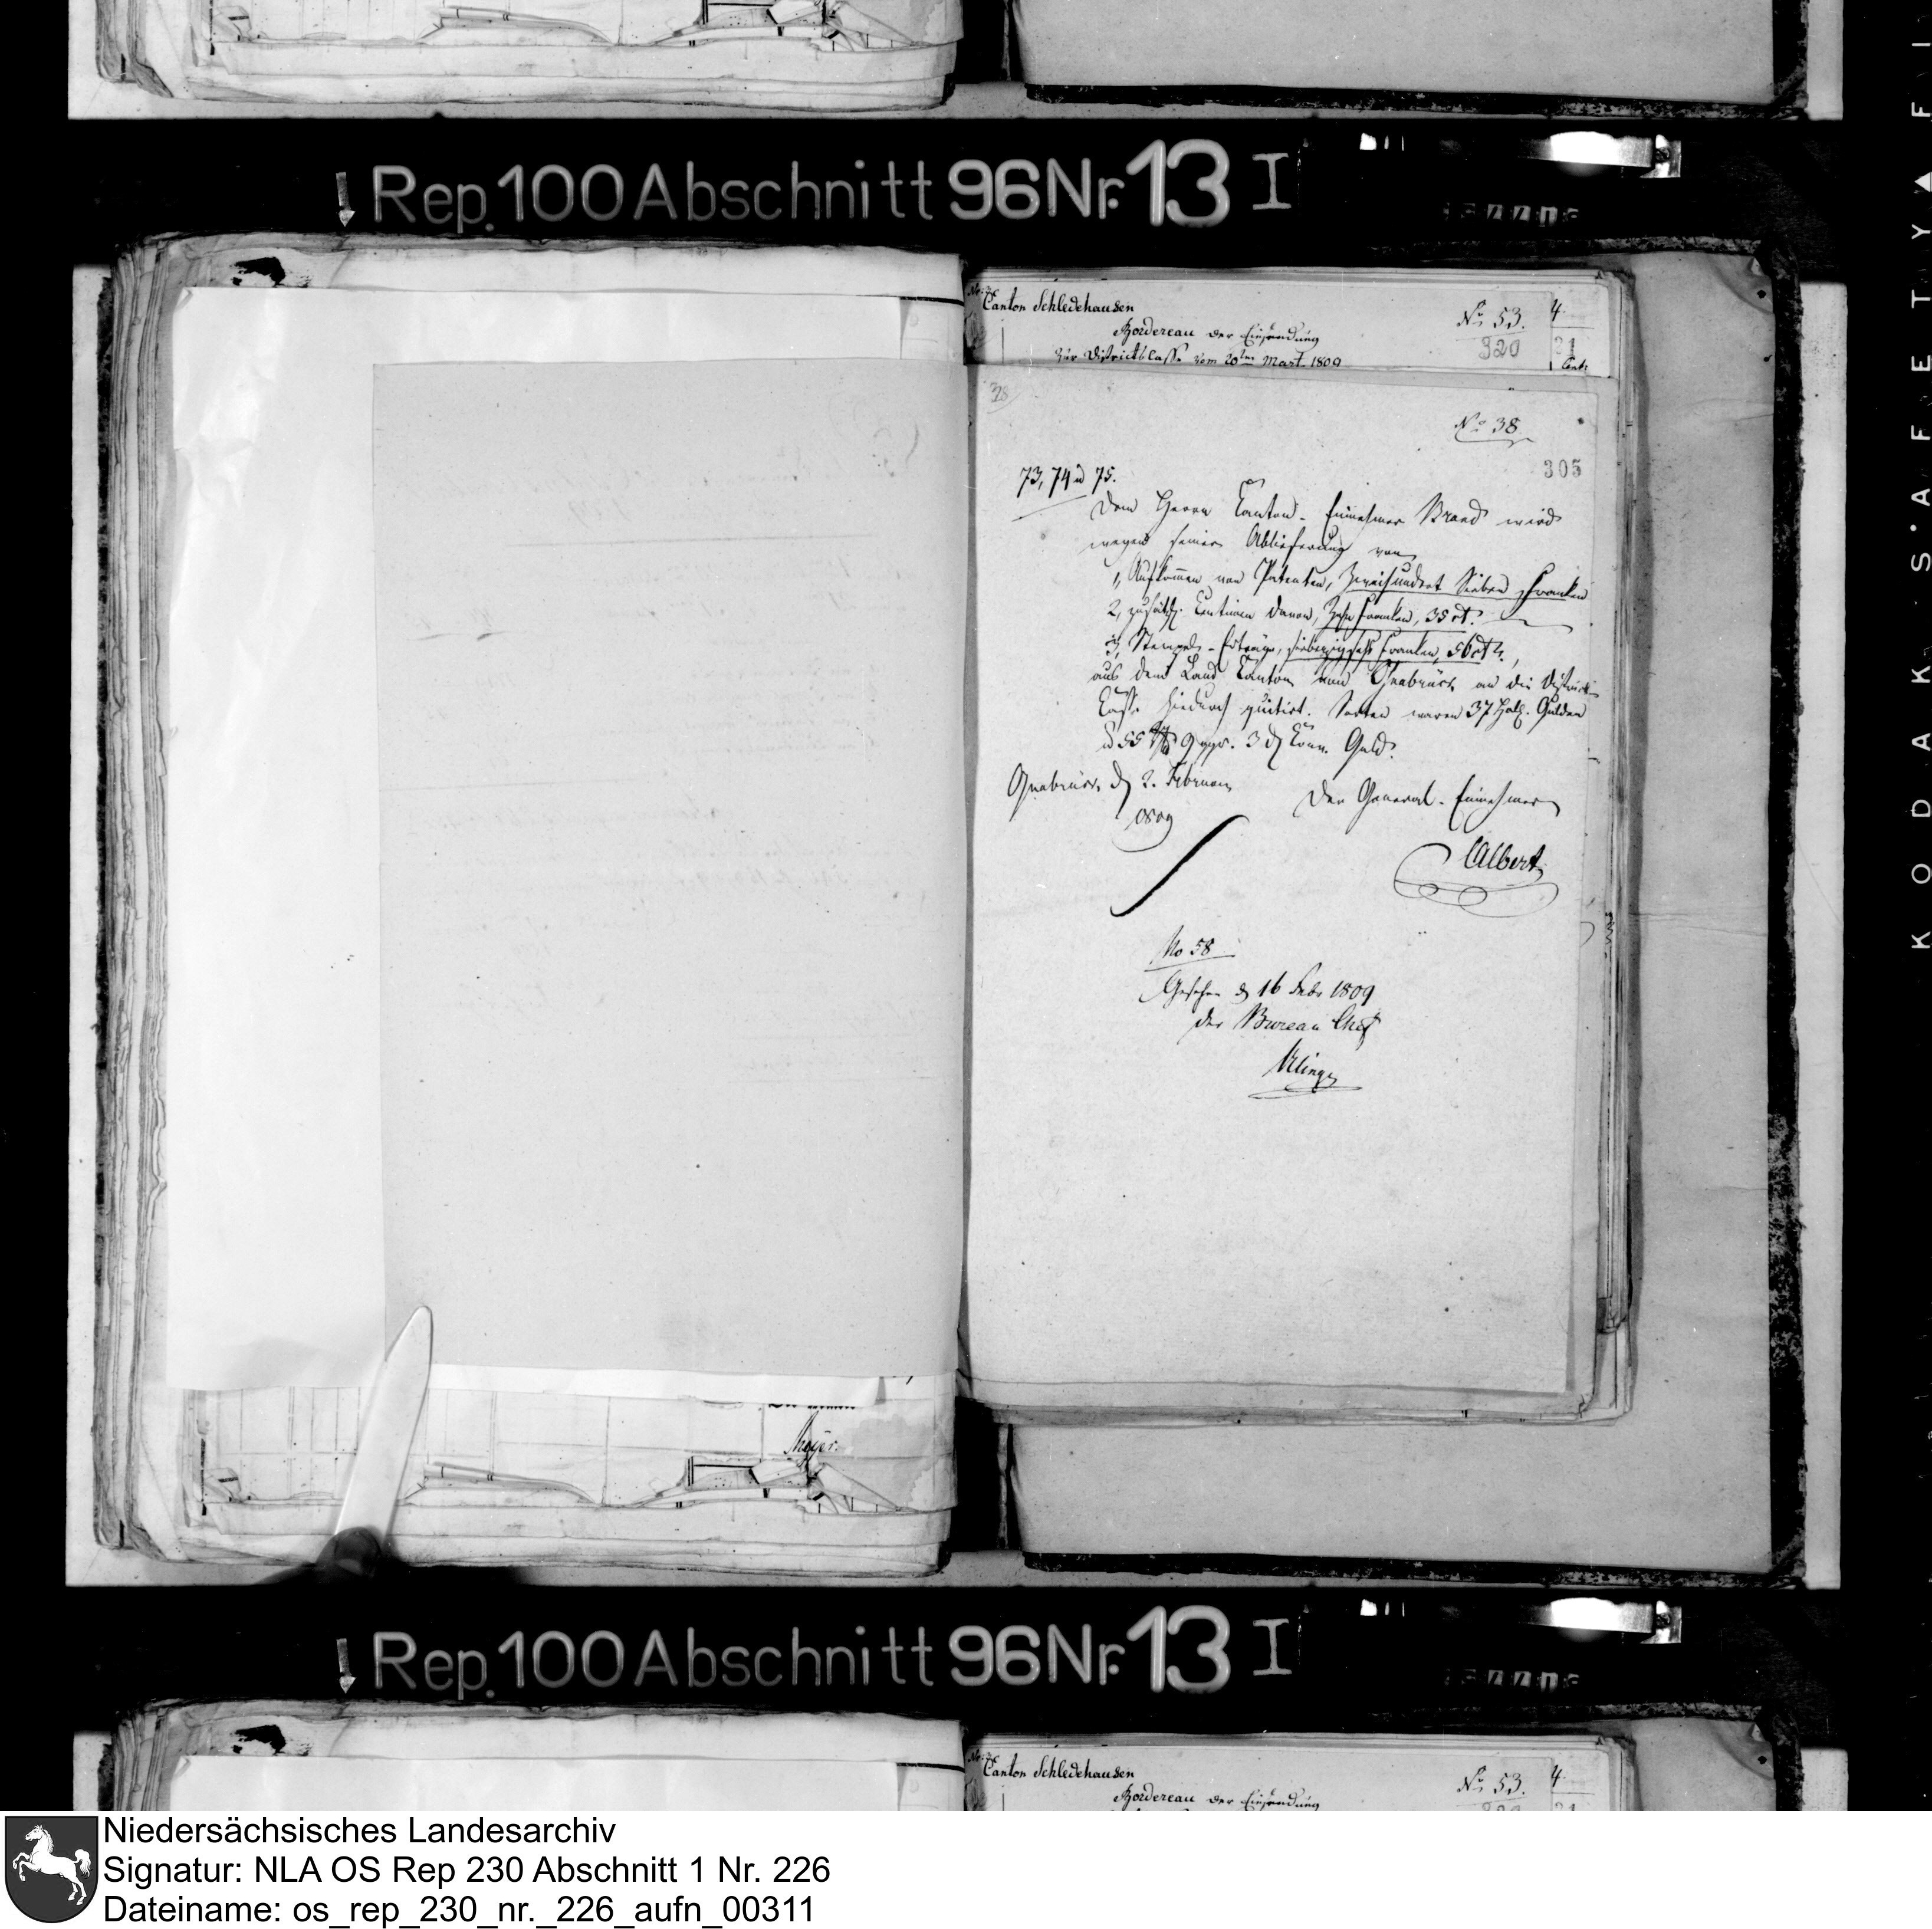 Rep. 100 Abschnitt 96 Nr. 13 I
Canton Schledehausen
Bordereau der Einsendung
zur Districtscasse vom 20ten Mart. 1809
No 53.
320
4
31
Cent:
38
No 38
305
73, 74 u 75.
Dem Herrn Canton-Einnehmer Brand wird
wegen seiner Ablieferung von
1, Aufkommen von Patenten, Zweihundert Sieben Franken
2, zusätzl. Centimen davon, Zehn Franken, 35 ct.
3, Stempel-Erträge, siebenzigsechs Franken, 56 ct
aus dem Land Canton von Osnabrück an die Districts
Casse hiedurch quitirt. Sorten waren 37 Holl. Gulden
u 55 9 ggr. 3 d Conv. Geld.
Osnabrück d 2. Februar
1809
Der General-Einnehmer
CAlbert
No 58
Gesehen d 16 Febr 1809
der Bureau Chef
Klinge
Meyer.
Rep. 100 Abschnitt 96 Nr. 13 I
Canton Schledehausen
Bordereau der Einsendung
No 53.
4
KODAK · SAFETY
Niedersächsisches Landesarchiv
Signatur: NLA OS Rep 230 Abschnitt 1 Nr. 226
Dateiname: os_rep_230_nr._226_aufn_00311